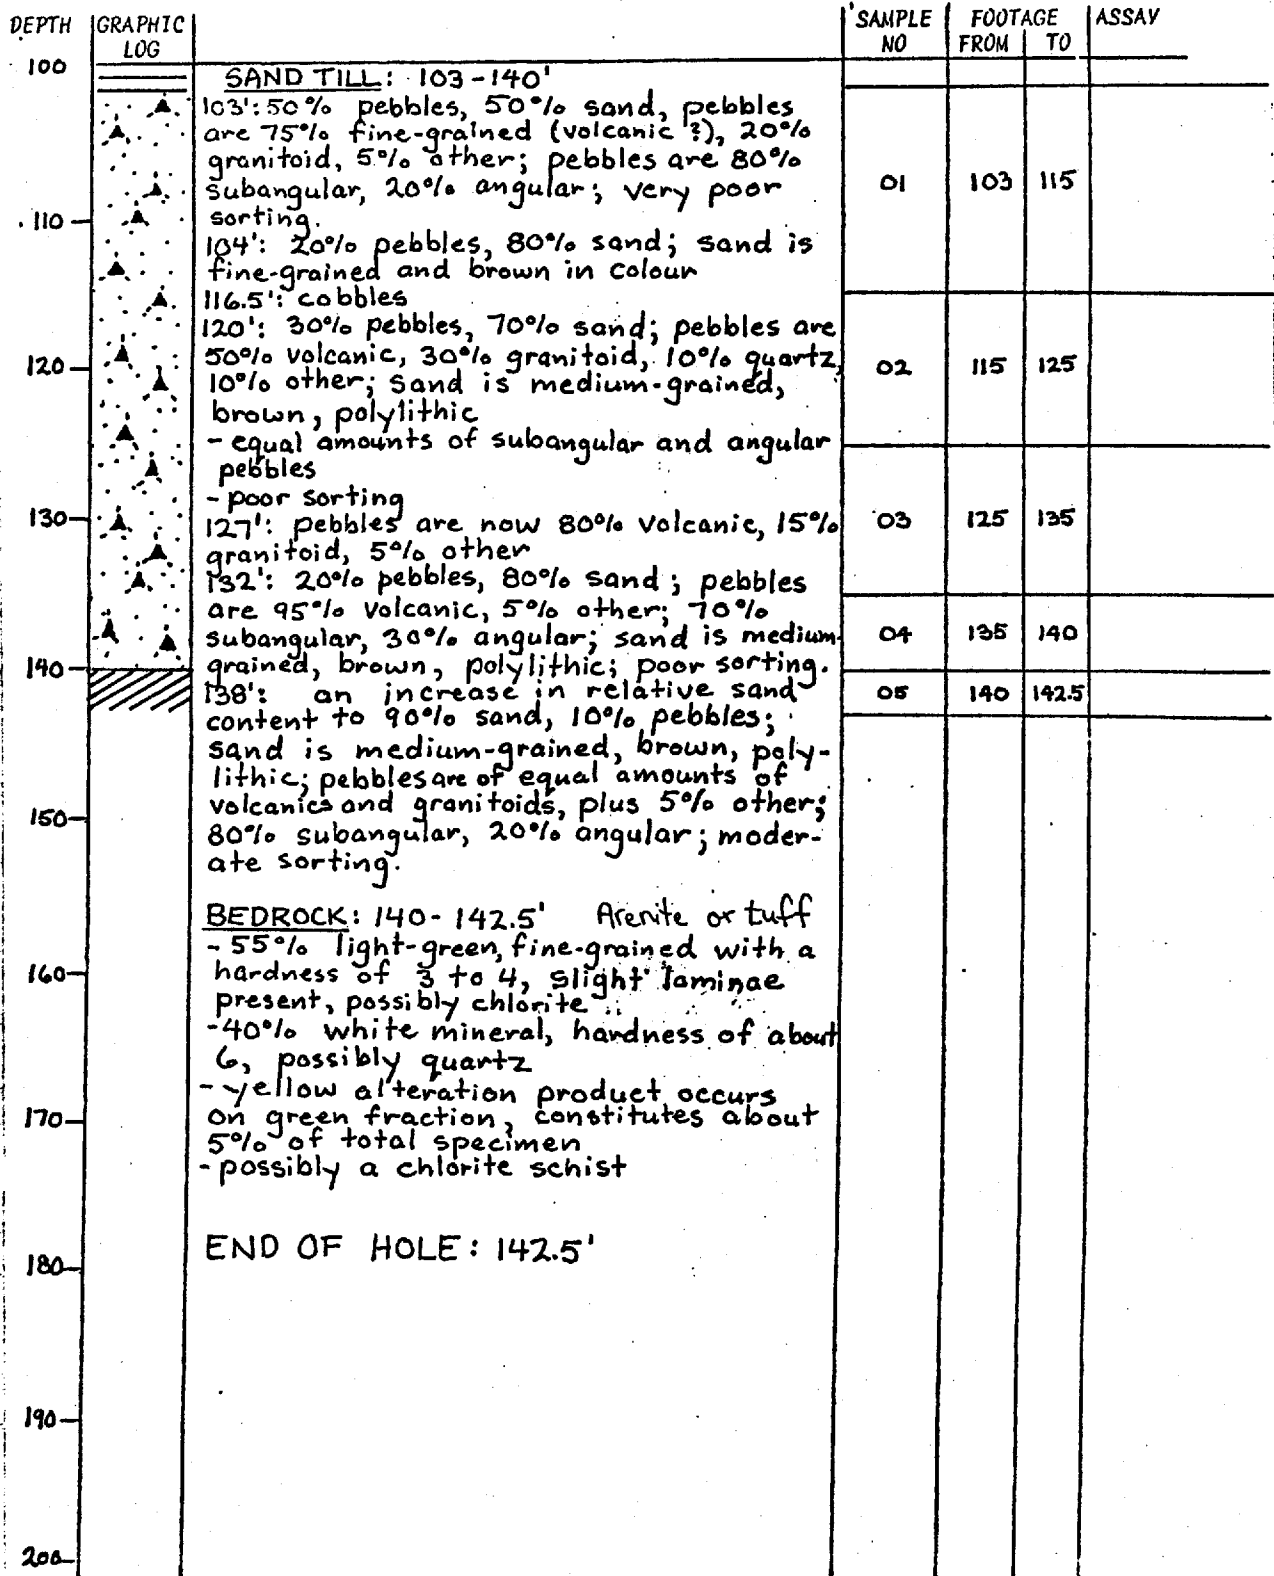 DEPTH GRAPHIC LOG SAMPLE NO FOOTAGE FROM TO ASSAY
100
SAND TILL: 103-140'
103': 50% pebbles, 50% sand, pebbles
are 75% fine-grained (volcanic ?), 20%
granitoid, 5% other; pebbles are 80%
subangular, 20% angular; very poor
sorting.
01 103 115
110
104': 20% pebbles, 80% sand; sand is
fine-grained and brown in colour
116.5': cobbles
120': 30% pebbles, 70% sand; pebbles are
50% volcanic, 30% granitoid, 10% quartz,
10% other; sand is medium-grained,
brown, polylithic
120
02 115 125
- equal amounts of subangular and angular
pebbles
- poor sorting
127': pebbles are now 80% volcanic, 15%
granitoid, 5% other
130
03 125 135
132': 20% pebbles, 80% sand; pebbles
are 95% volcanic, 5% other; 70%
subangular, 30% angular; sand is medium-
grained, brown, polylithic; poor sorting.
04 135 140
140
138': an increase in relative sand
content to 90% sand, 10% pebbles;
sand is medium-grained, brown, poly-
lithic; pebbles are of equal amounts of
volcanics and granitoids, plus 5% other;
80% subangular, 20% angular; moder-
ate sorting.
05 140 142.5
150
BEDROCK: 140-142.5' Arenite or tuff
- 55% light-green, fine-grained with a
hardness of 3 to 4, slight laminae
present, possibly chlorite
160
- 40% white mineral, hardness of about
6, possibly quartz
- yellow alteration product occurs
on green fraction, constitutes about
5% of total specimen
- possibly a chlorite schist
170
END OF HOLE: 142.5'
180
190
200